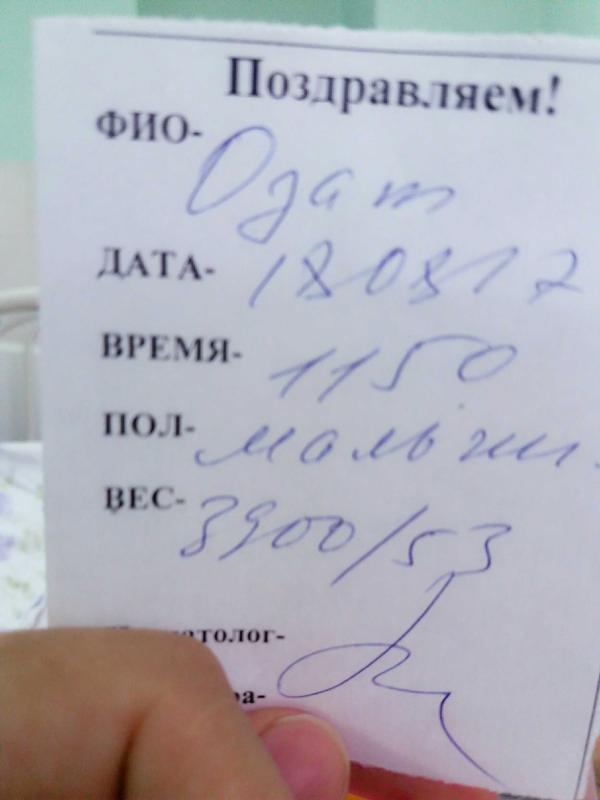 Поздравляем!
ФИО-
ДАТА- 180817
ВРЕМЯ- 1150
ПОЛ- мальчик
ВЕС- 3900/53